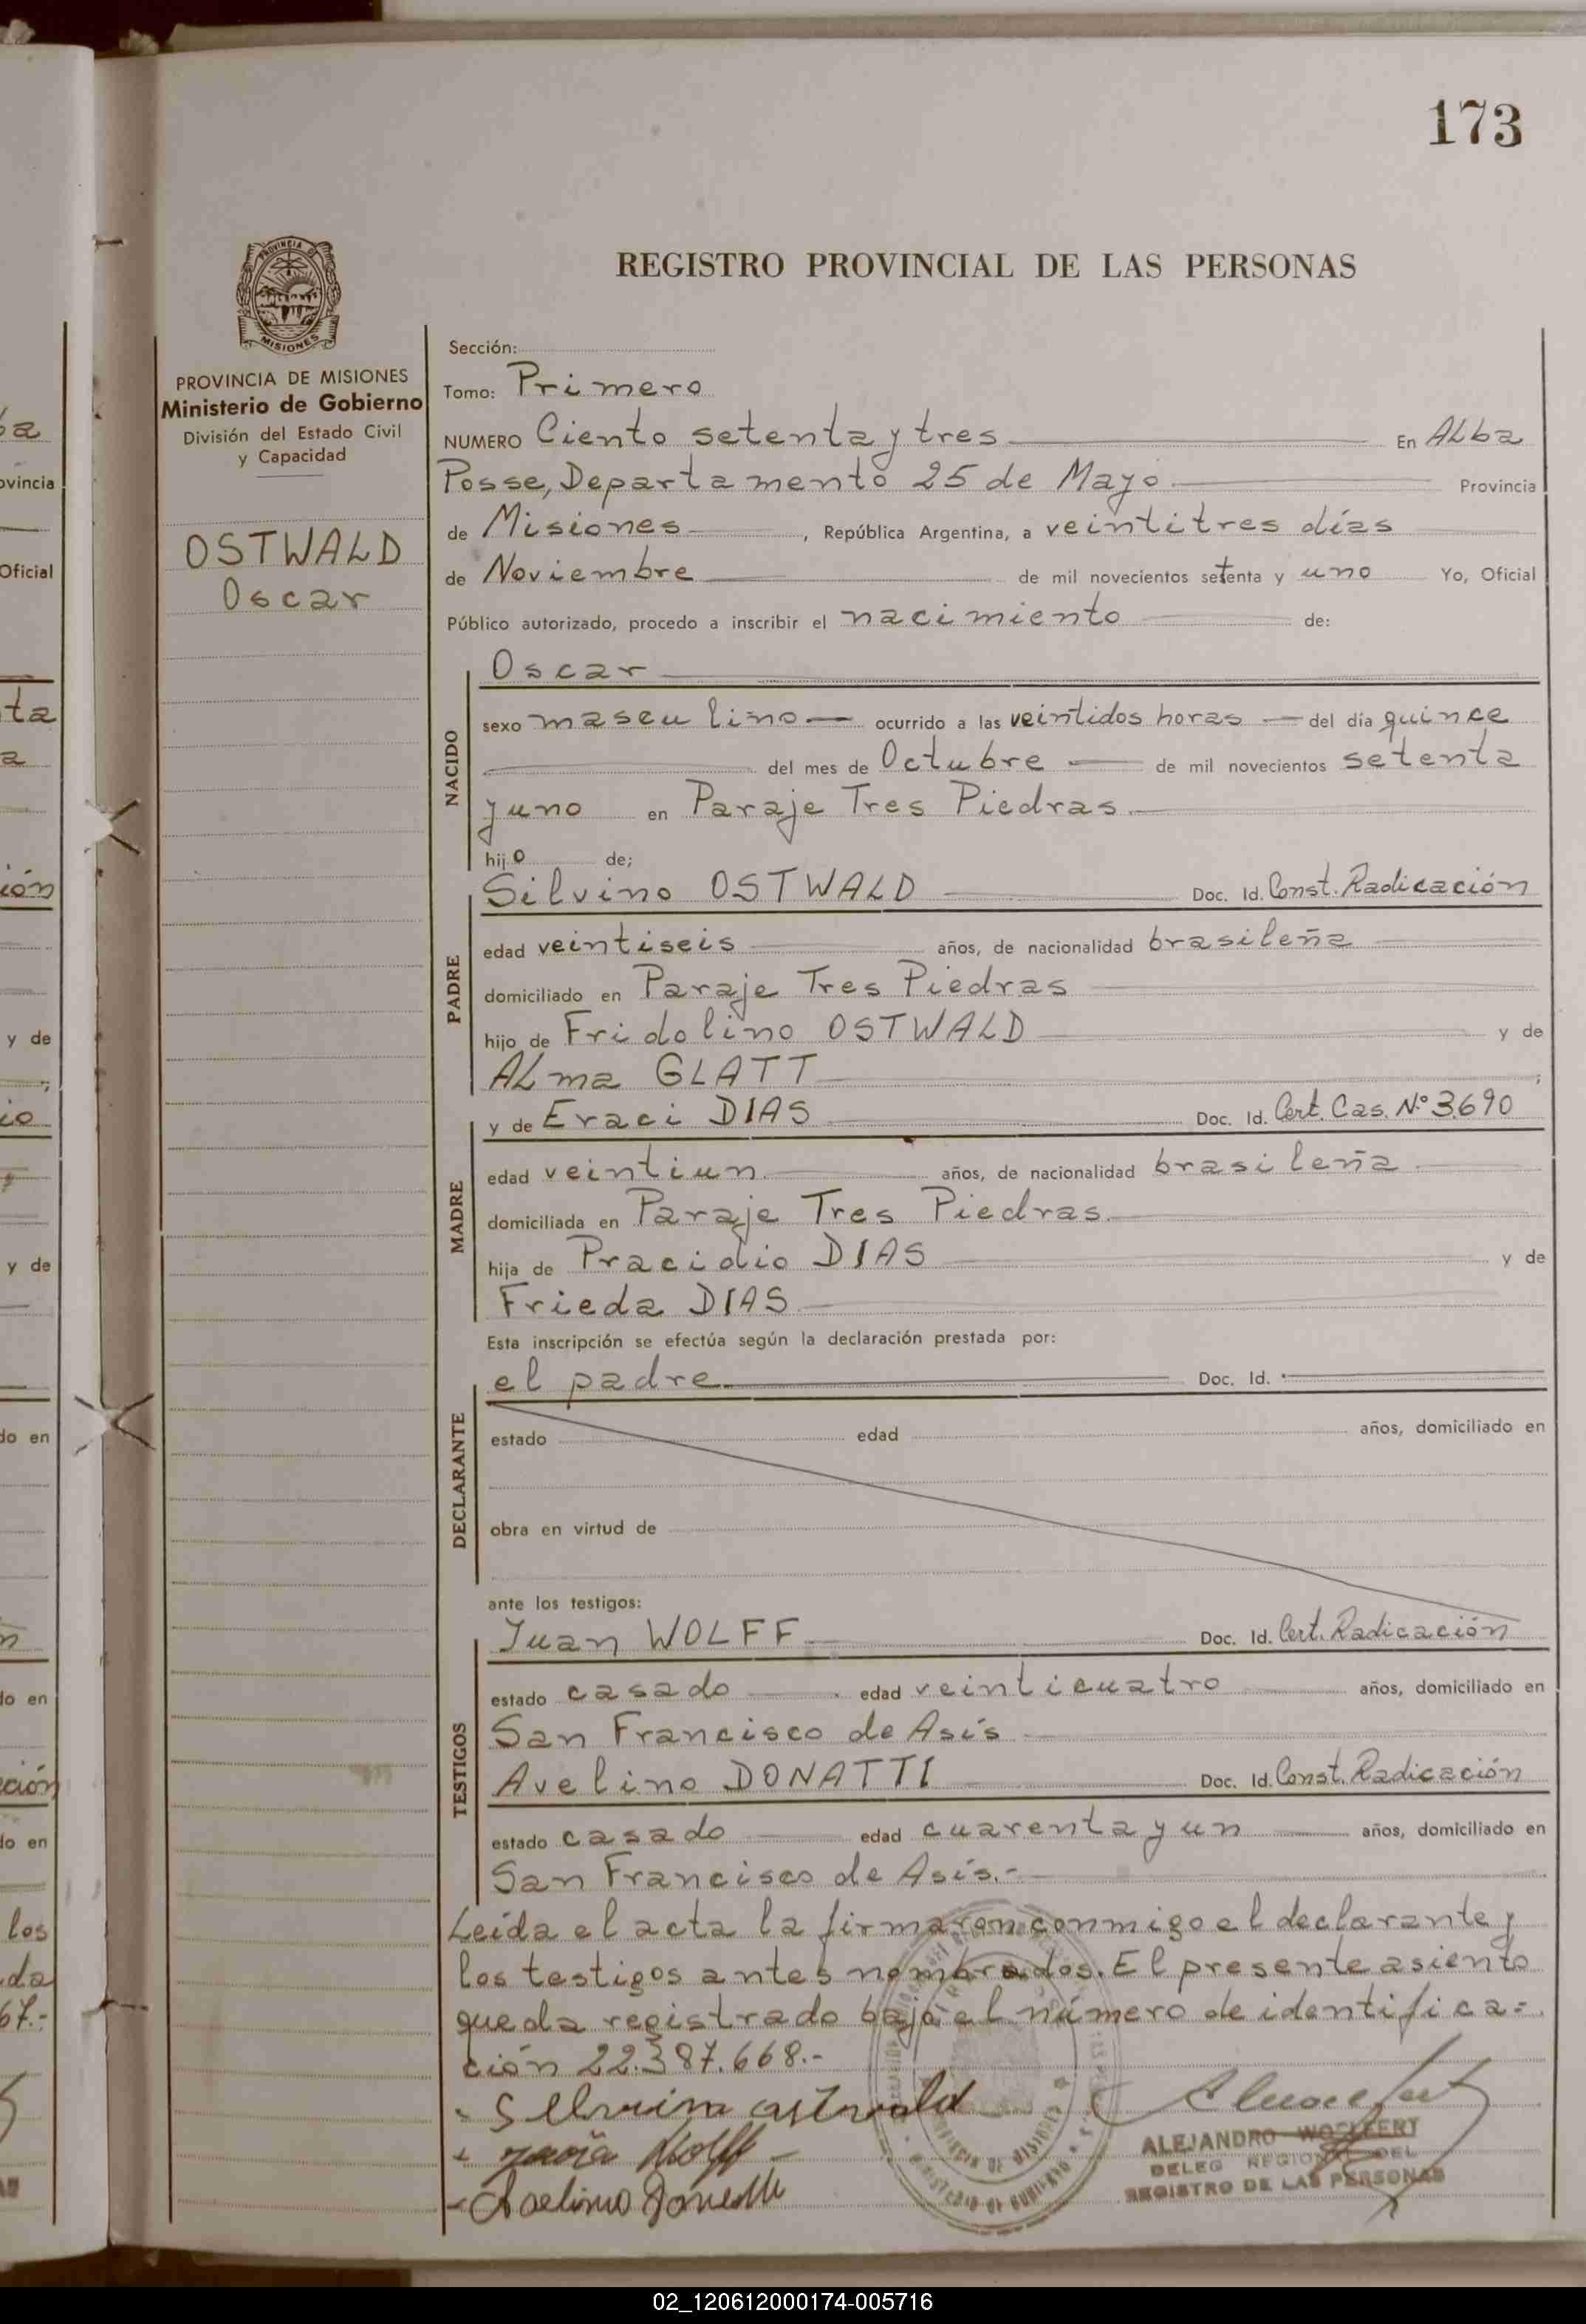 173
REGISTRO PROVINCIAL DE LAS PERSONAS
PROVINCIA DE MISIONES
MISIONES
PROVINCIA DE MISIONES
Ministerio de Gobierno
División del Estado Civil
y Capacidad
OSTWALD
Oscar
Sección:
Tomo: Primero
NUMERO Ciento setenta y tres En ALba
Posse, Departamento 25 de Mayo Provincia
de Misiones, República Argentina, a veintitres días
de Noviembre de mil novecientos setenta y uno Yo, Oficial
Público autorizado, procedo a inscribir el nacimiento de:
NACIDO
Oscar
sexo masculino ocurrido a las veintidos horas del día quince
del mes de Octubre de mil novecientos setenta
y uno en Paraje Tres Piedras
hijo de;
PADRE
Silvino OSTWALD Doc. Id. Const. Radicación
edad veintiseis años, de nacionalidad brasileña
domiciliado en Paraje Tres Piedras
hijo de Fridolino OSTWALD y de
ALma GLATT ;
MADRE
y de Eraci DIAS Doc. Id. Cert. Cas. Nº 3.690
edad veintiun años, de nacionalidad brasileña
domiciliada en Paraje Tres Piedras
hija de Pracidio DIAS y de
Frieda DIAS
Esta inscripción se efectúa según la declaración prestada por:
DECLARANTE
el padre Doc. Id.
estado edad años, domiciliado en
obra en virtud de
ante los testigos:
TESTIGOS
Juan WOLFF Doc. Id. Cert. Radicación
estado casado edad veinticuatro años, domiciliado en
San Francisco de Asís
Avelino DONATTI Doc. Id. Const. Radicación
estado casado edad cuarenta y un años, domiciliado en
San Francisco de Asís.-
Leída el acta la firmaron conmigo el declarante y
los testigos antes nombrados. El presente asiento
queda registrado bajo el número de identifica=
ción 22.387.668.-
ALEJANDRO WOELFERT
DELEG REGIONAL DEL
REGISTRO DE LAS PERSONAS
02_120612000174-005716